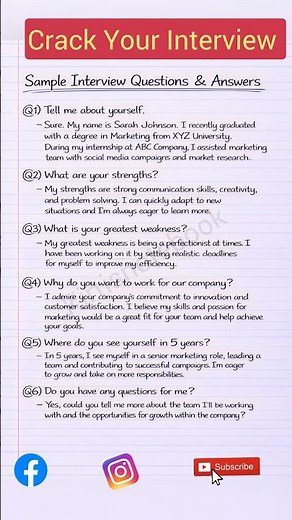 Crack Your Interview
Sample Interview Questions & Answers
Q1) Tell me about yourself.
– Sure. My name is Sarah Johnson. I recently graduated
with a degree in Marketing from XYZ University.
During my internship at ABC Company, I assisted marketing
team with social media campaigns and market research.
Q2) What are your strengths?
– My strengths are strong communication skills, creativity,
and problem solving. I can quickly adapt to new
situations and I'm always eager to learn more.
Q3) What is your greatest weakness?
– My greatest weakness is being a perfectionist at times. I
have been working on it by setting realistic deadlines
for myself to improve my efficiency.
Q4) Why do you want to work for our company?
– I admire your company's commitment to innovation and
customer satisfaction. I believe my skills and passion for
marketing would be a great fit for your team and help achieve
your goals.
Q5) Where do you see yourself in 5 years?
– In 5 years, I see myself in a senior marketing role, leading a
team and contributing to successful campaigns. I'm eager
to grow and take on more responsibilities.
Q6) Do you have any questions for me?
– Yes, could you tell me more about the team I'll be working
with and the opportunities for growth within the company?
Subscribe